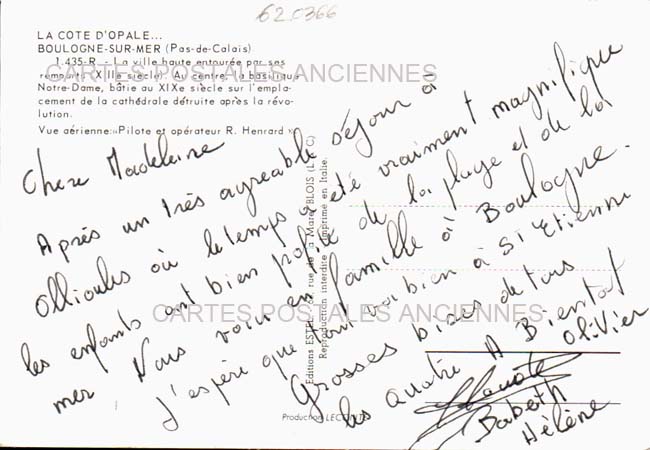 62.0366
LA COTE D'OPALE...
BOULOGNE-SUR-MER (Pas-de-Calais)
1.435-R. - La ville haute entourée par ses
remparts (XIIIe siècle). Au centre, la basilique
Notre-Dame, bâtie au XIXe siècle sur l'empla-
cement de la cathédrale détruite après la révo-
lution.
Vue aérienne: «Pilote et opérateur R. Henrard»
CARTES POSTALES ANCIENNES
Chere Madeleine
Après un très agreable séjour à
Ollioules où le temps a été vraiment magnifique
les enfants ont bien profité de la plage et de la
mer Nous voici en famille à Boulogne.
J'espère que tout va bien à St Etienne
Grosses bises de tous
les quatre A Bientot
Olivier
Babeth
Hélène
Editions ESTEL - rue de la Mare, BLOIS
Reproduction interdite Imprimé en Italie.
CARTES POSTALES ANCIENNES
Production LECONTE